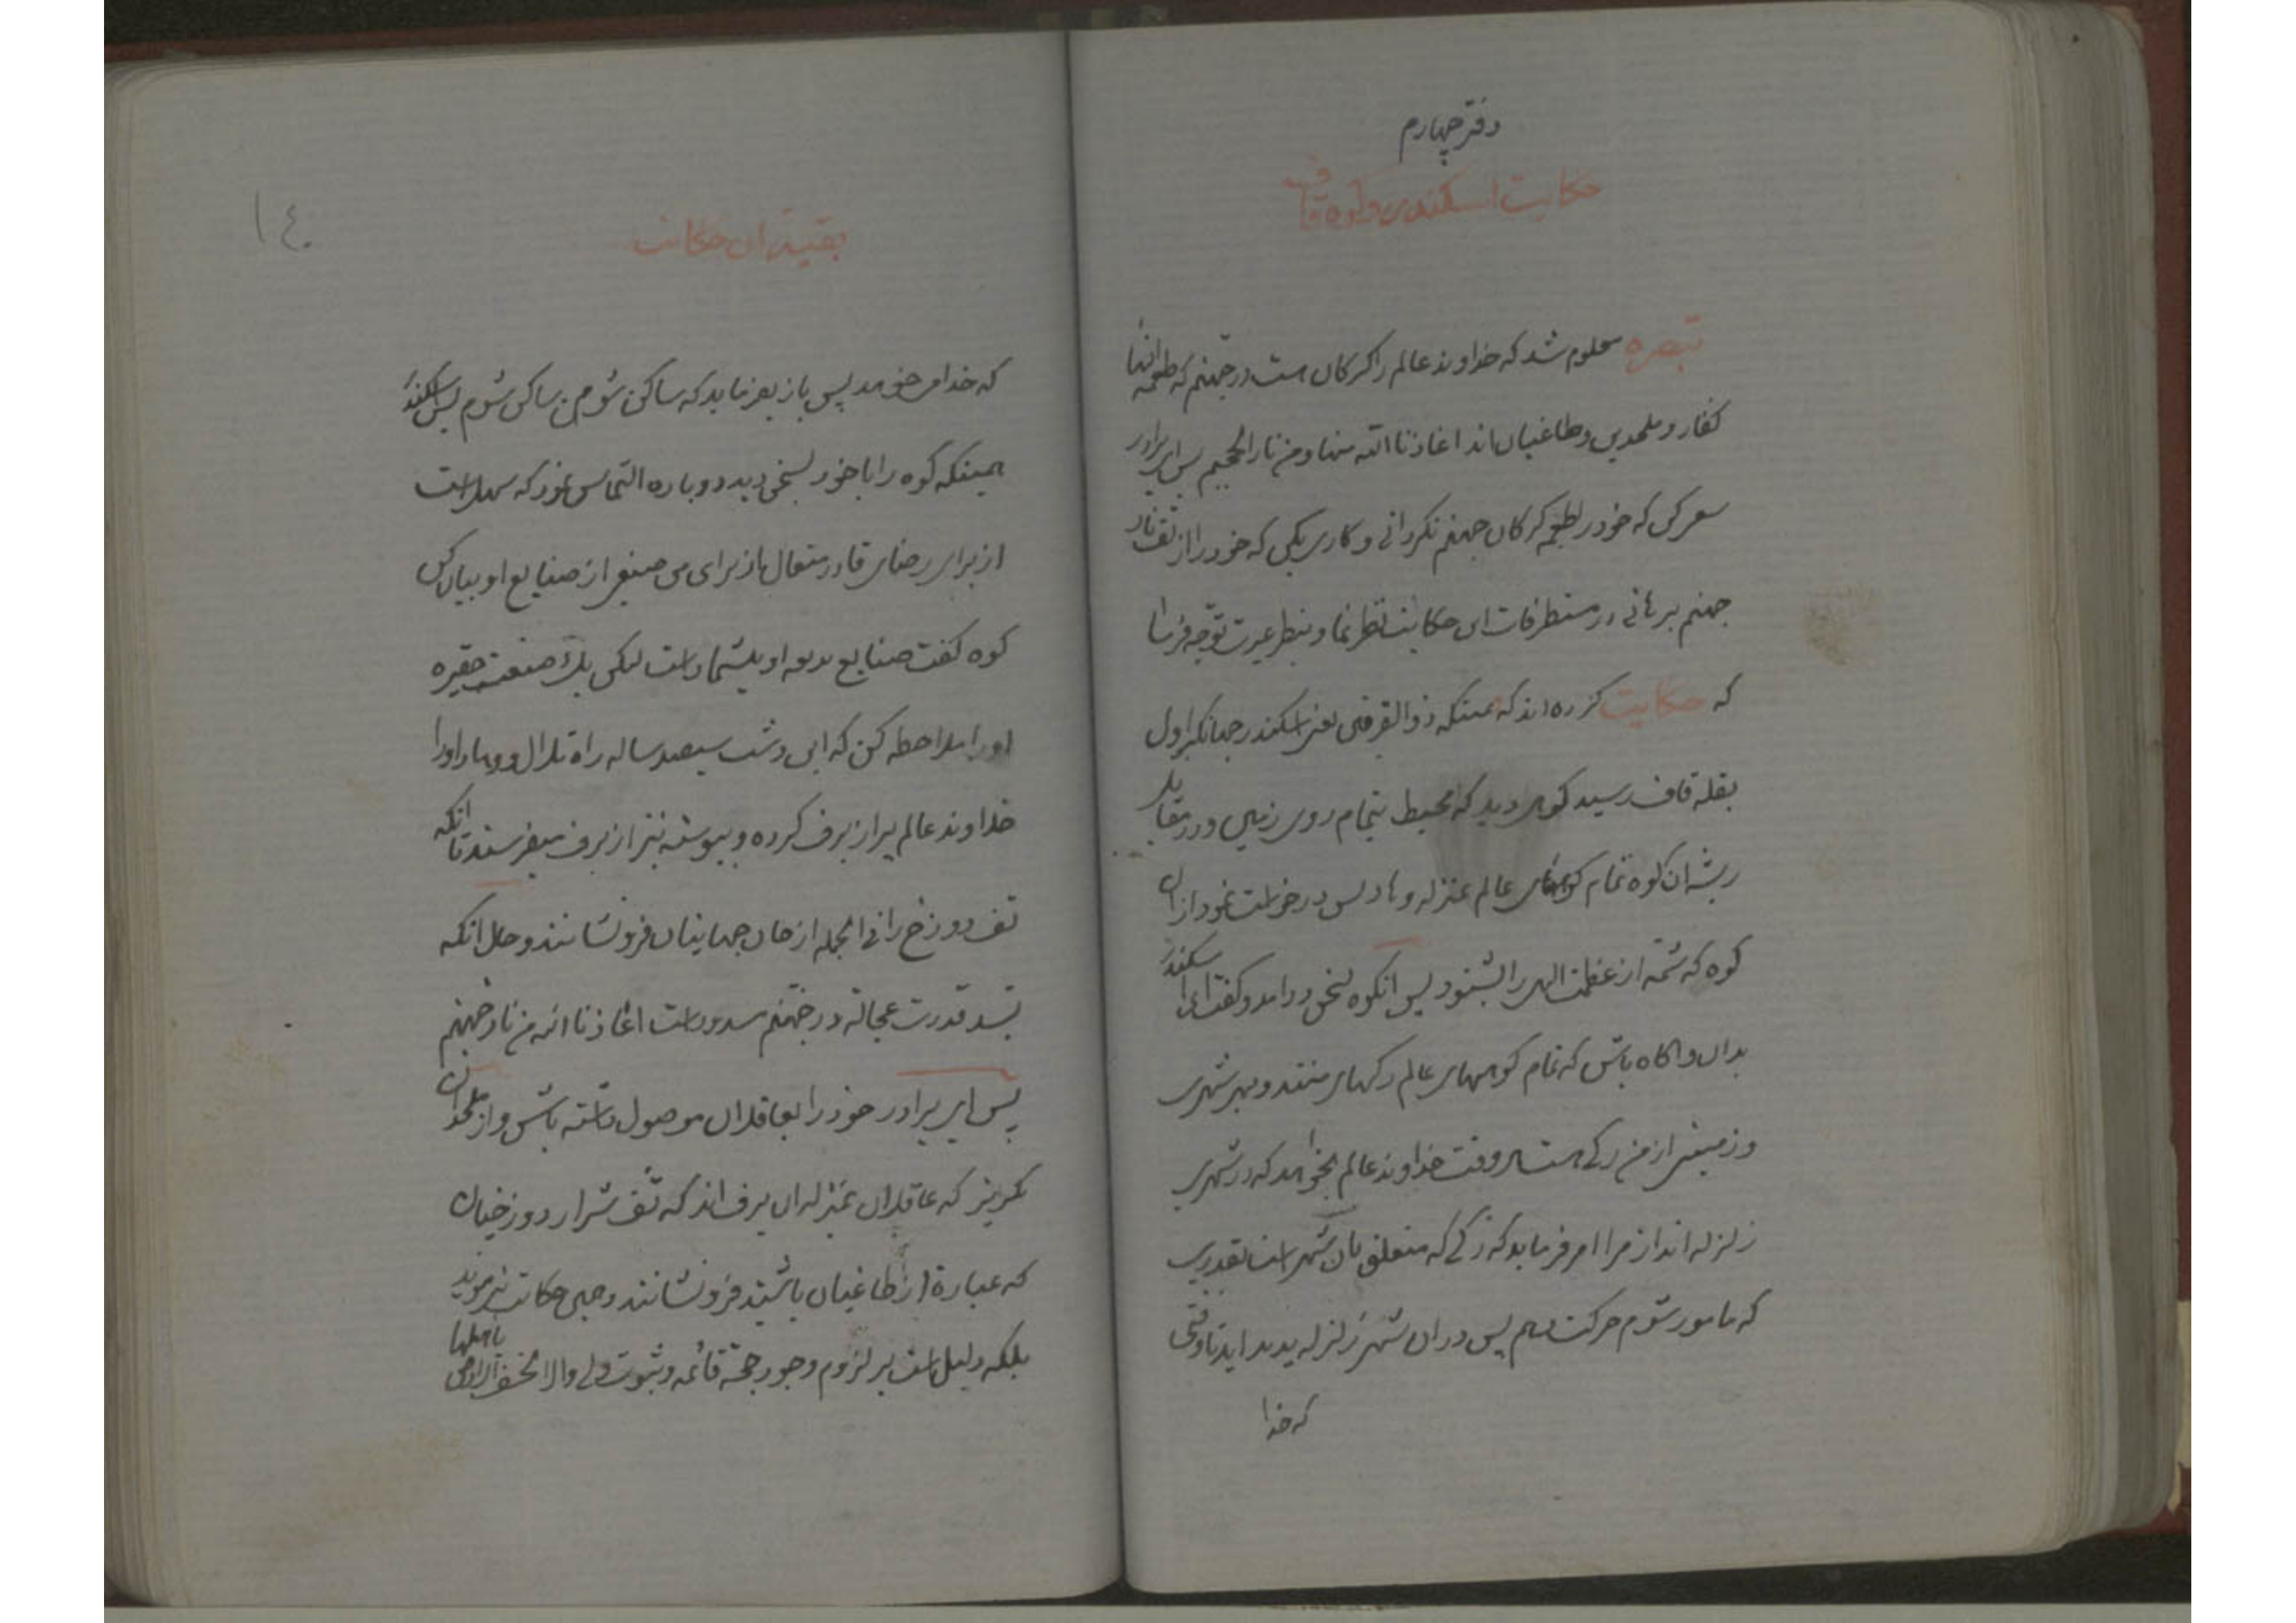 دفتر چهارم
حکایت اسکندر و کوه قاف
تبصره معلوم شد که خداوند عالم را کرکان هست در جهنم که طعمه انها
کفار و ملحدین و طاغیان اند اعاذنا الله منها و من نار الجحیم پس ای برادر
سعی کن که خود را طعمه کرکان جهنم نکردانی و کاری بکنی که خود را از تف نار
جهنم برهانی در مستطرفات این حکایت نظر نما و بنظر عبرت توجه فرما
که حکایت کرده اند که همینکه ذوالقرنین یعنی اسکندر جهانکیر اول
بقله قاف رسید کوهی دید که محیط بتمام روی زمین و در مقابل
ریشه ان کوه تمام کوههای عالم بمنزله وهاد پس درخواست نمود از ان
کوه که شمه از عظمت الهی را بشنود پس انکوه بسخن در امد و کفت ای اسکندر
بدان و اکاه باش که تمام کوههای عالم رکهای منند و بهر شهری
و زمینی از من رکی هست هر وقت خداوند عالم بخواهد که در شهری
زلزله اندازد مرا امر فرماید که رکی که متعلق بان شهر است بقدری
که مامور شوم حرکت دهم پس در ان شهر زلزله پدید اید تا وقتی
که خدا
بقیه ان حکایت
۱٤۰
که خدا می خواهد پس باز بفرماید که ساکن شو من ساکن شوم پس اسکندر
همینکه کوه را با خود بسخن دید دوباره التماس نمود که سهل است
از برای رضای قادر متعال باز برای من صنعی از صنایع او بیان کن
کوه کفت صنایع بدیعه او بیشمار است لیکن یک صنعت حقیره
او را ملاحظه کن که این دشت سیصد ساله راه تلال و وهاد او را
خداوند عالم پر از برف کرده و پیوسته نیز از برف میفرستد تا انکه
تف دوزخ را فی الجمله از جان جهانیان فرونشانند و حال انکه
بید قدرت عجالة در جهنم مسدود است اعاذنا الله من نار جهنم
پس ای برادر خود را بعاقلان موصول داشته باش و از ملحدان
بکریز که عاقلان بمنزله ان برف اند که تف شرار دوزخیان
که عبارة از طاغیان باشند فرونشانند و همین حکایت نیز موید
بلکه دلیل است بر لزوم وجود حجة قائمه و ثبوت ولی والا لخسفت الارض باهلها